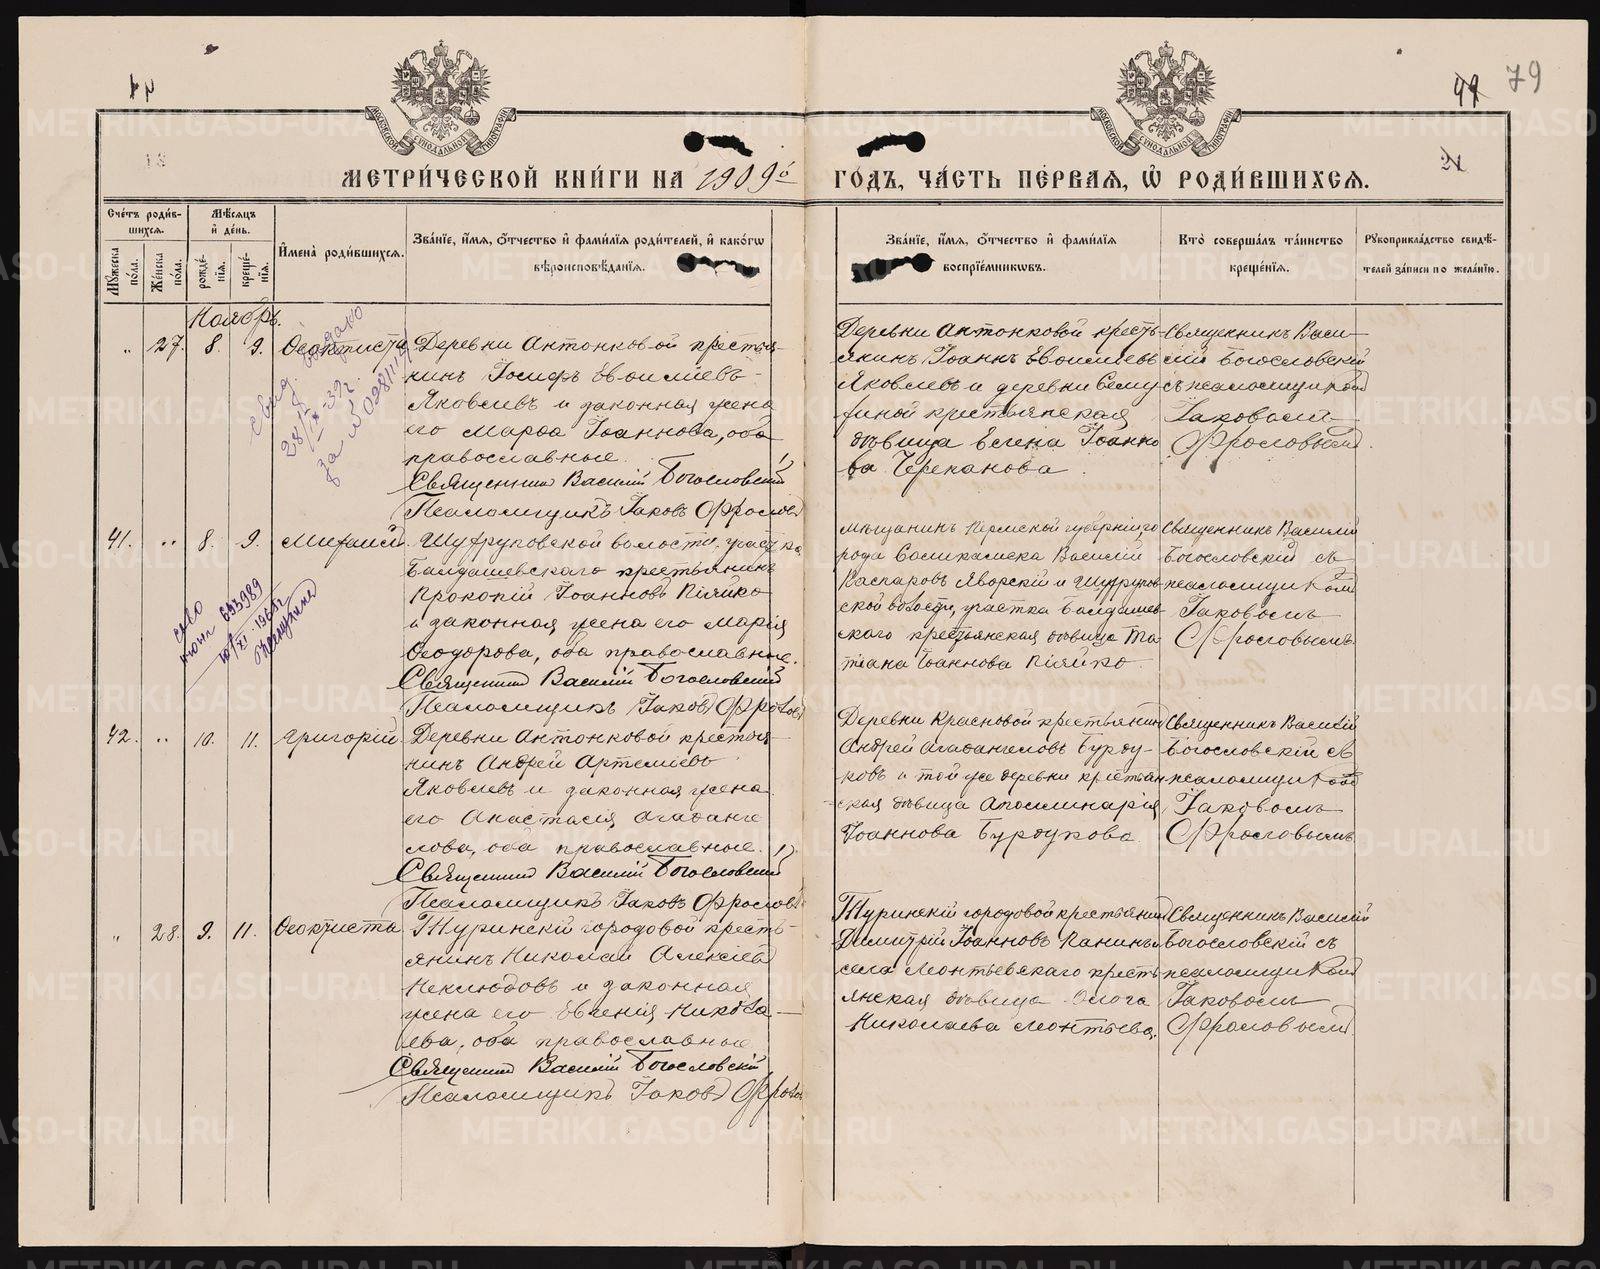 41
79
МЕТРИ́ЧЕСКОЙ КНИ́ГИ НА 1909й
ГО́ДЪ, ЧА́СТЬ ПЕ́РВАЯ, Ѽ РОДИ́ВШИХСЯ.
Сче́тъ роди́в-
шихся.
Мꙋжеска по́ла.
Же́нска по́ла.
Мѣ́сяцъ
и҆ де́нь.
рожде́-
нїя.
креще́-
нїя.
И҆мена̀ роди́вшихся.
Зва́нїе, и҆́мя, ѻ҆́тчество и҆ фами́лїя роди́телей, и҆ како́гѡ
вѣроисповѣ́данїя.
Зва́нїе, и҆́мя, ѻ҆́тчество и҆ фами́лїя
воспрїе́мникѡвъ.
Кто̀ соверша́лъ та́инство
креще́нїя.
Рꙋкоприкла́дство свидѣ́-
телей за́писи по жела́нїю.
Ноябрь.
27. 8. 9. Ѳеоктиста
Деревни Антонковой крестья-
нинъ Іосифъ Евсигнѣевъ
Яковлевъ и законная жена
его Марѳа Іоаннова, оба
православные.
Священникъ Василій Богословскій
Псаломщикъ Іаковъ Фроловъ
Деревни Антонковой кресть-
янинъ Іоаннъ
Яковлевъ и деревни
крестьянская
дѣвица Елена Іоанно
ва Черепанова.
Священникъ Васи-
лій Богословскій
съ псаломщикомъ
Іаковомъ
Фроловымъ.
41. 8. 9. Михаилъ
Шуфруковской волости, участка
Балдашевскаго крестьянинъ
Прокопій Іоанновъ Кіяйко
и законная жена его Марія
Ѳеодорова, оба православные.
Священникъ Василій Богословскій
Псаломщикъ Іаковъ Фроловъ
мѣщанинъ Пермской губерніи, го
рода Соликамска Василій
Каспаровъ Яворскій и
ской волости, участка Балдашев-
скаго крестьянская дѣвица Та-
тіана Іоаннова Кіяйко.
Священникъ Василій
Богословскій съ
псаломщикомъ
Іаковомъ
Фроловымъ.
42. 10. 11. Григорій
Деревни Антонковой крестья-
нинъ Андрей Артеміевъ
Яковлевъ и законная жена
его Анастасія Агаѳанге
лова, оба православные.
Священникъ Василій Богословскій
Псаломщикъ Іаковъ Фроловъ
Деревни Красновой крестьянинъ
Андрей Агаѳангеловъ Бурду-
ковъ и той же деревни крестьян
ская дѣвица Аполлинарія
Іоаннова Бурдукова.
Священникъ Василій
Богословскій съ
псаломщикомъ
Іаковомъ
Фроловымъ.
28. 9. 11. Ѳеоктиста
Туринскій городовой кресть-
янинъ Николай Алексіевъ
Неклюдовъ и законная
жена его Евгенія Никола-
ева, оба православные
Священникъ Василій Богословскій
Псаломщикъ Іаковъ Фроловъ
Туринскій городовой крестьянинъ
Димитрій Іоанновъ Канинъ и
села Леонтьевскаго кресть-
янская дѣвица Ольга
Николаева Леонтьева.
Священникъ Василій
Богословскій съ
псаломщикомъ
Іаковомъ
Фроловымъ.